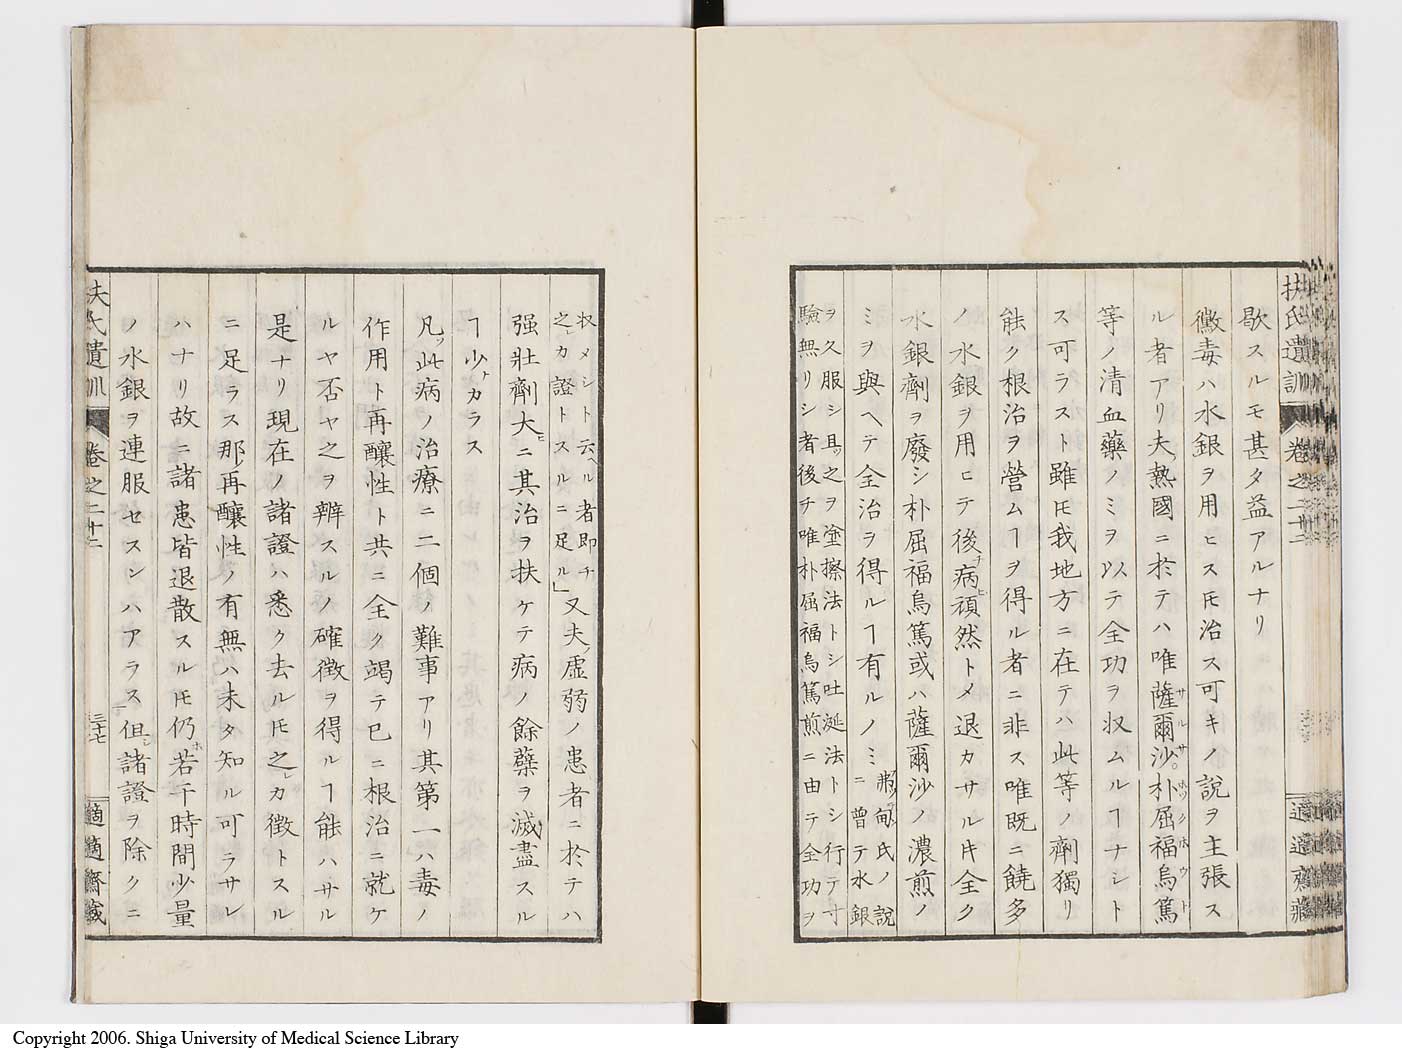 扶氏遺訓 卷之二十二 適適齋藏
歇スルモ甚タ益アルナリ
黴毒ハ水銀ヲ用ヒスㇳモ治ス可キノ說ヲ主張ス
ル者アリ夫熱國ニ於テハ唯薩爾沙朴屈福烏篤
等ノ清血藥ノミヲ以テ全功ヲ収ムルヿナシト
ス可ラスト雖ㇳモ我地方ニ在テハ此等ノ劑獨リ
能ク根治ヲ營ムヿヲ得ル者ニ非ス唯既ニ饒多
ノ水銀ヲ用ヒテ後病頑然トメ退カサルキ全ク
水銀劑ヲ廢シ朴屈福烏篤或ハ薩爾沙ノ濃煎ノ
ミヲ與ヘテ全治ヲ得ルヿ有ルノミ
弗甸氏ノ說
ニ曾テ水銀
ヲ久服シ且之ヲ塗擦法トシ吐涎法トシ行テ寸
驗無リシ者後チ唯朴屈福烏篤煎ニ由テ全功ヲ
収メシト云ヘル者即チ
之カ證トスルニ足ル」
又夫虛弱ノ患者ニ於テハ
强壯劑大ニ其治ヲ扶ケテ病ノ餘蘖ヲ滅盡スル
ヿ少ナカラス
凡ソ此病ノ治療ニ二個ノ難事アリ其第一ハ毒ノ
作用ト再釀性ト共ニ全ク竭テ已ニ根治ニ就ケ
ルヤ否ヤ之ヲ辨スルノ確徵ヲ得ルヿ能ハサル
是ナリ現在ノ諸證ハ悉ク去ルㇳモ之レカ徵トスル
ニ足ラス那ノ再釀性ノ有無ハ未タ知ル可ラサレ
ハナリ故ニ諸患皆退散スルㇳモ仍ホ若干時間少量
ノ水銀ヲ連服セスンハアラス但シ諸證ヲ除クニ
扶氏遺訓 卷之二十二 三十七 適適齋藏
Copyright 2006. Shiga University of Medical Science Library